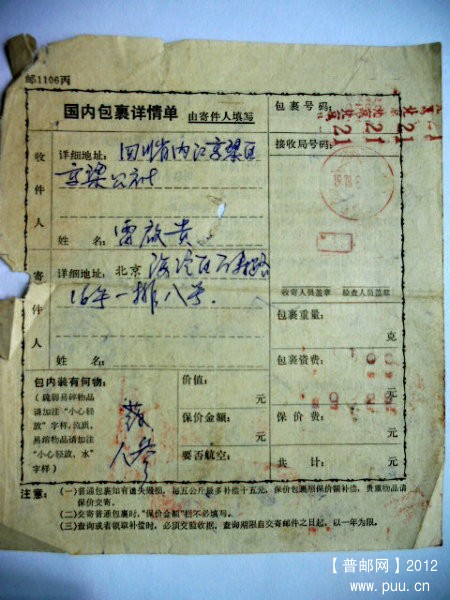 邮1106丙
国内包裹详情单 由寄件人填写
包裹号码:
接收局号码:
21 21 21
收件人
详细地址: 四川省内江
公社
姓名: 雷啟贵
寄件人
详细地址: 北京 海淀区
16号一排八号.
姓名:
收寄人员盖章 检查人员盖章
包裹重量: 克
包裹资费: 元
保价费: 元
共计: 元
包内装有何物:
(脆弱易碎物品
请加注“小心轻
放”字样,流质,
易溶物品请加注
“小心轻放,水”
字样)
人参
价值: 元
保价金额: 元
要否航空:
注意: (一)普通包裹如有遗失毁损,每五公斤最多补偿十五元,保价包裹照保价额补偿,贵重物品请
保价交寄。
(二)交寄普通包裹时,“保价金额”栏不必填写。
(三)查询或者领取补偿时,必须交验收据,查询期限自交寄邮件之日起,以一年为限。
【普邮网】2012
www.puu.cn